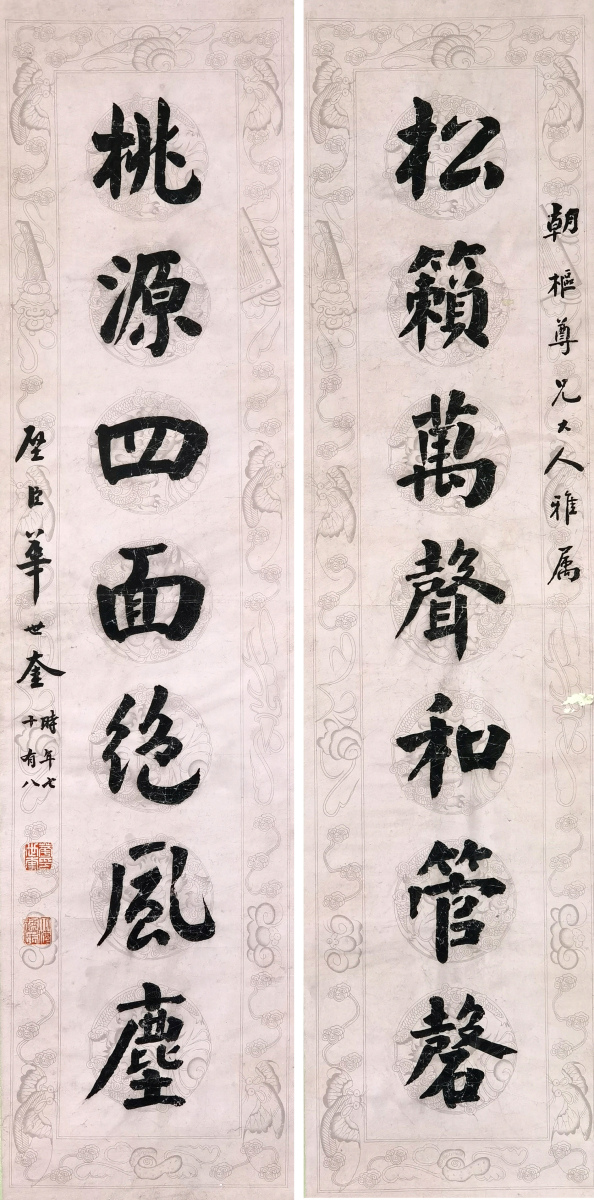 朝樞尊兄大人雅属
松籟萬聲和管磬
桃源四面絕風塵
壁臣華世奎
時年七
十有八